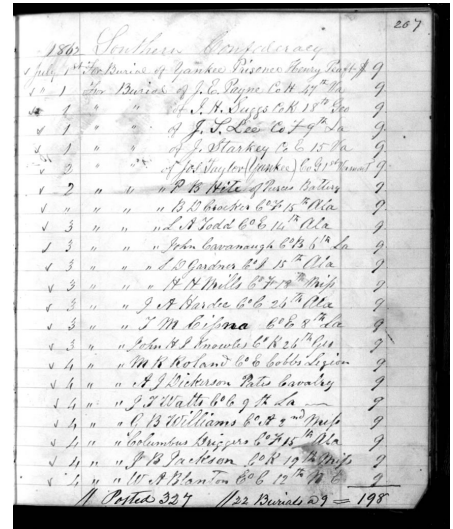 207
1862 Southern Confederacy
July 1st For Burial of Yankee Prisoner Henry 9
" 1 For Burial of J. E. Payne Co H 47th Va 9
1 " " of J. H. Suggs Co K 18th Geo 9
1 " " of J. S. Lee Co F 9th La 9
1 " " of J. Starkey Co E 15 Va 9
2 " " of Jos Taylor (Yankee) Co G 1st Vermont 9
2 " " P B Hite of Purcis Battery 9
" " " B D Crocker Co F 15th Ala 9
3 " " L A Todd Co E 14th Ala 9
" " " John Cavanaugh Co B 6th La 9
3 " " L D Gardner Co I 15th Ala 9
3 " " H H Mills Co F 19th Miss 9
3 " " J A Hardee Co C 26th Ala 9
3 " " T M Cissna Co E 8th La 9
3 " " John H S Knowles Co K 26th Geo 9
4 " " M R Roland Co E Cobbs Legion 9
4 " " A J Dickerson Pates Cavalry 9
4 " " J T Watts Co C 9th La 9
4 " " C B Williams Co A 2nd Miss 9
4 " " Columbus Driggers Co F 15th Ala 9
4 " " J B Jackson Co K 19th Miss 9
4 " " W A Blanton Co C 12th N C 9
// Posted 327 // 22 Burials @ 9 = 198